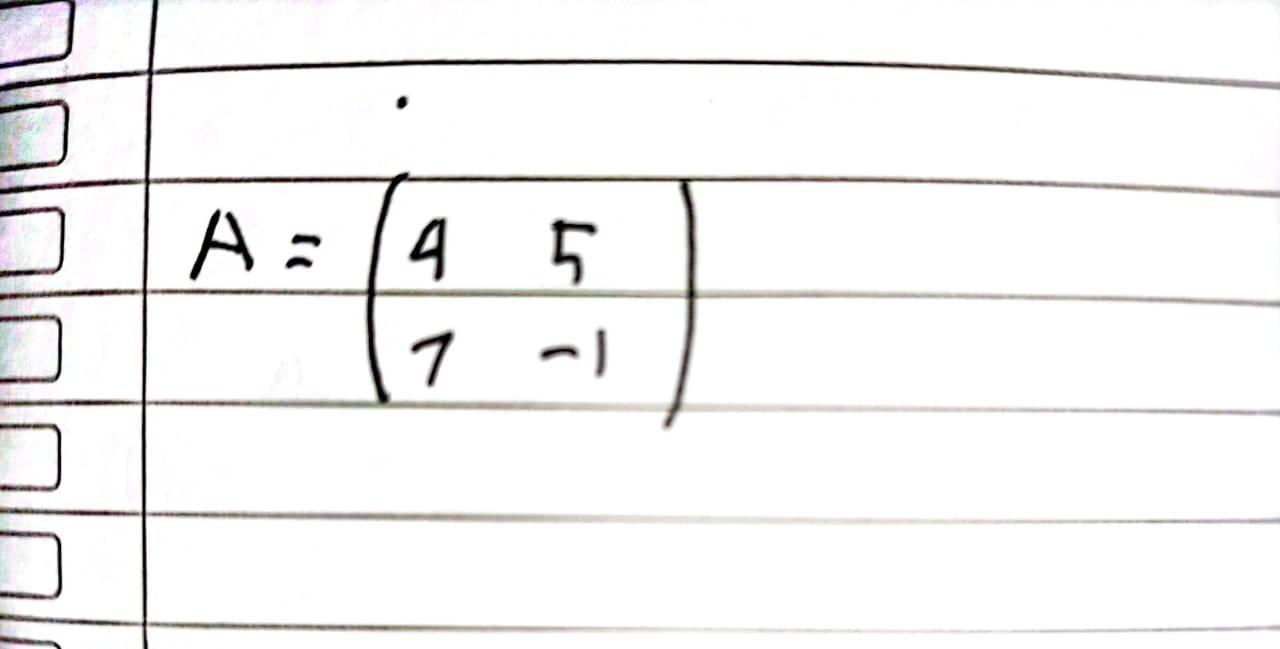 A = ( 4 5
7 -1 )